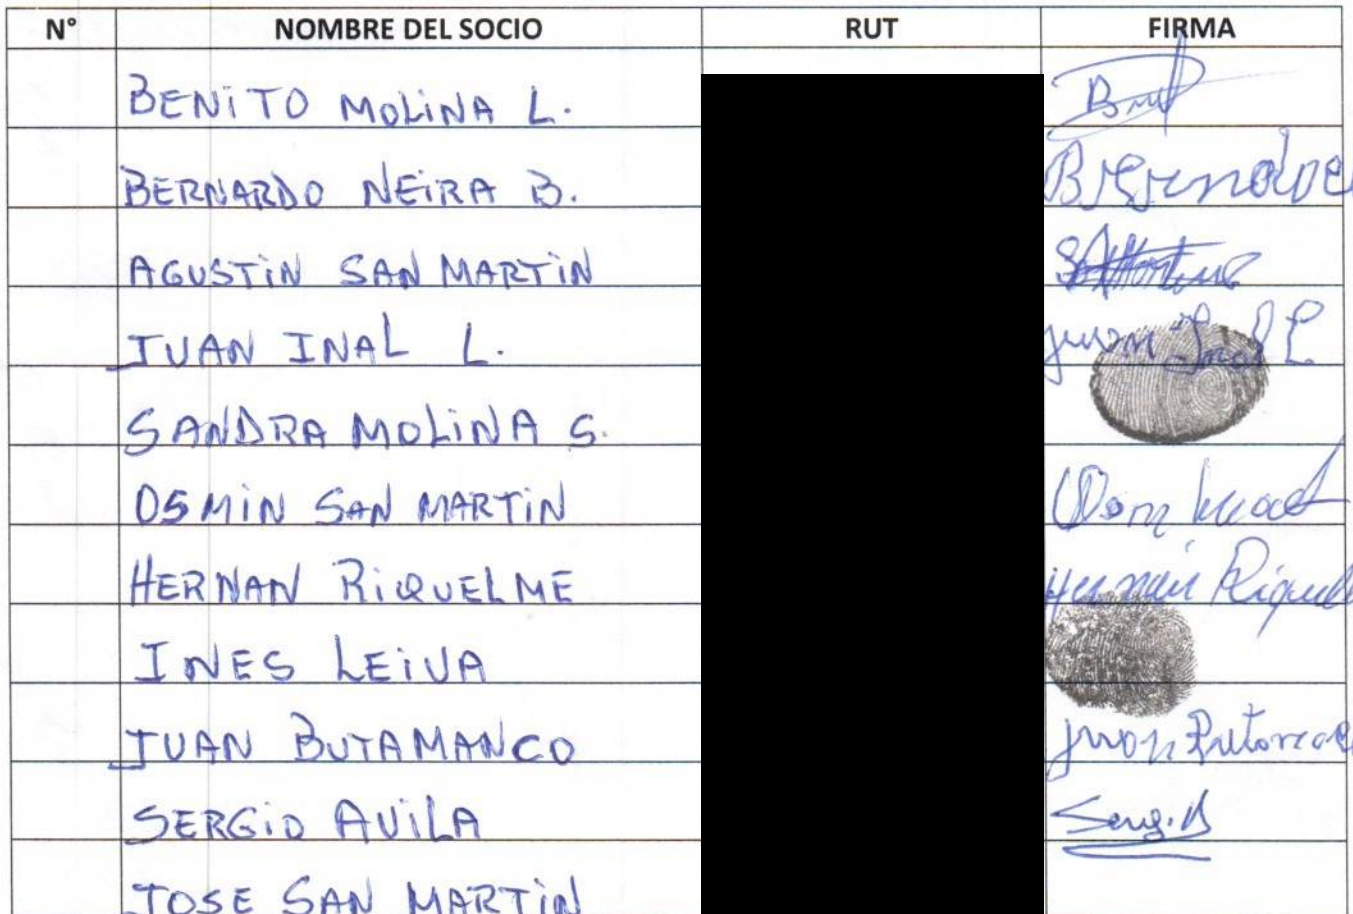 N° NOMBRE DEL SOCIO RUT FIRMA
BENITO MOLINA L.
BERNARDO NEIRA B.
AGUSTIN SAN MARTIN
JUAN INAL L. Juan Inal L
SANDRA MOLINA S.
OSMIN SAN MARTIN
HERNAN RIQUELME Hernan Riquel
INES LEIVA
JUAN BUTAMANCO Juan
SERGIO AVILA
JOSE SAN MARTIN